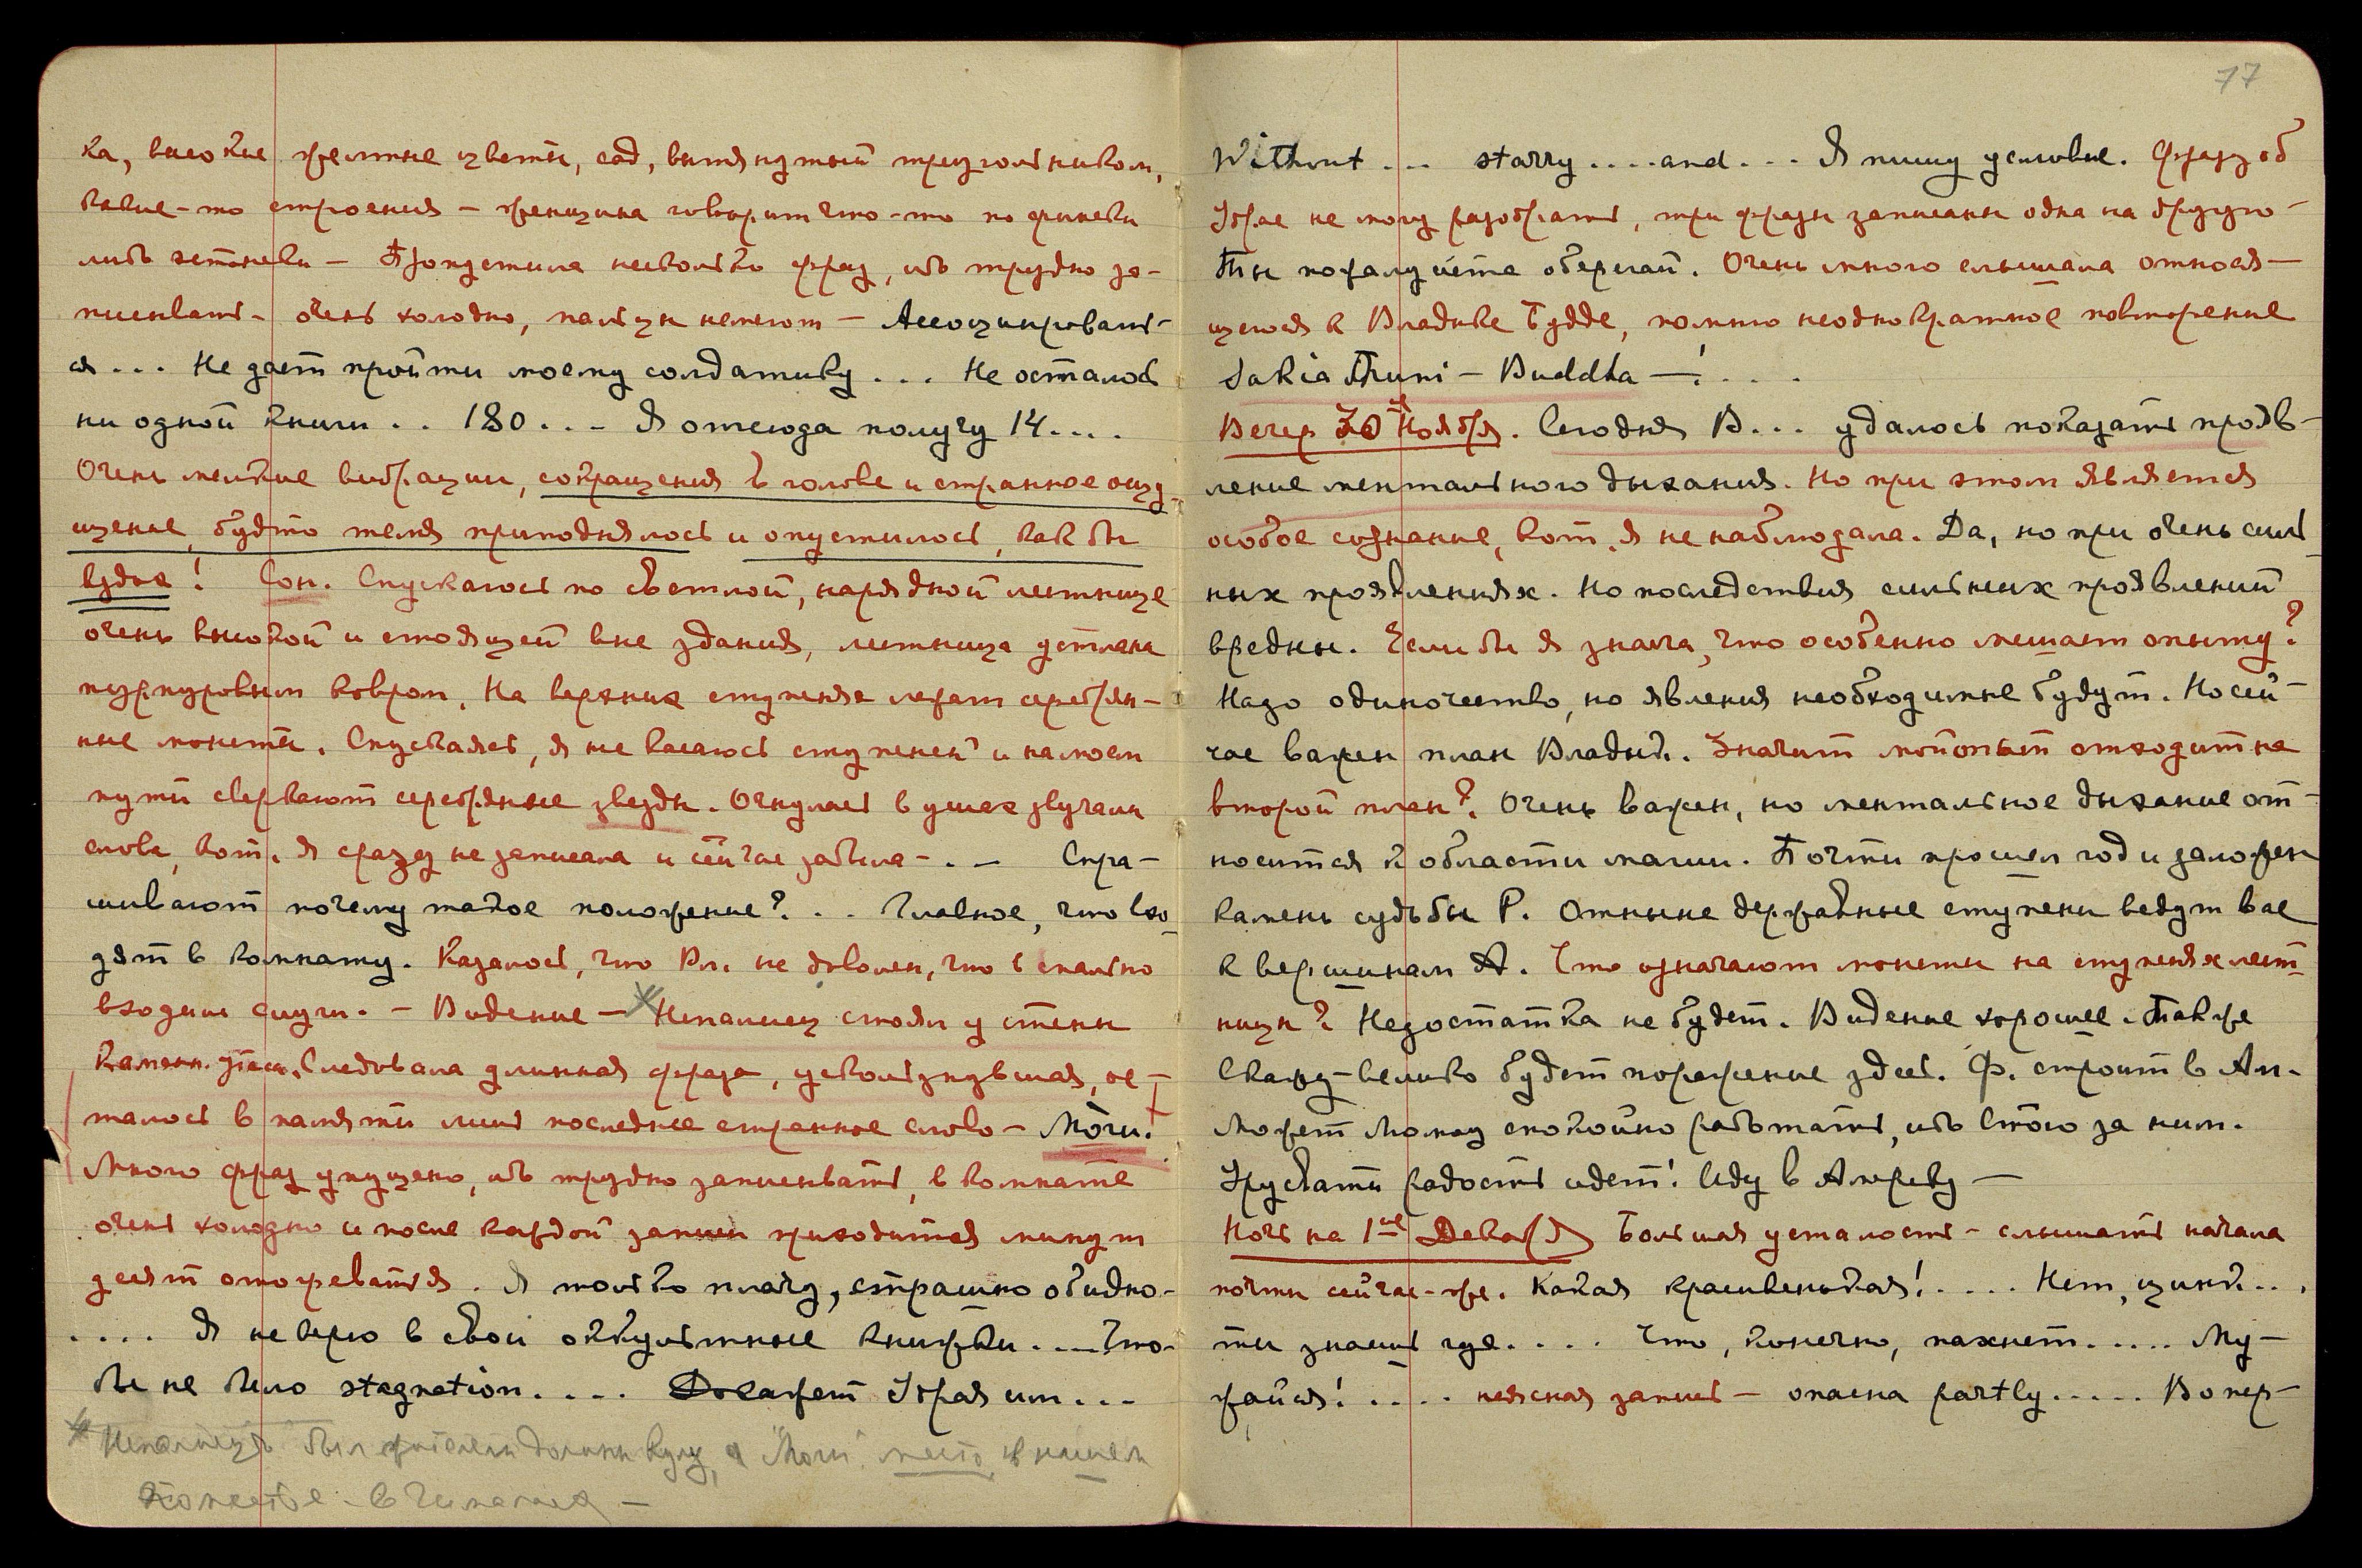 ка, высокие желтые цветы, сад, вытянутый треугольником,
какие-то строения – женщина говорит что-то по фински
либо эстонски – Пропустила несколько фраз, ибо трудно за-
писывать – очень холодно, пальцы немеют – Ассоциировать-
ся ... Не дает пройти моему солдатику ... Не осталось
ни одной книги .. 180 ... Я отсюда получу 14....
Очень мелкие вибрации, сокращения в голове и странное ощу-
щение, будто темя приподнялось и опустилось, как бы
вздох! Сон. Спускаюсь по светлой, нарядной лестнице
очень высокой и стоящей вне здания, лестница устлана
пурпуровым ковром. На верхних ступенях лежат серебрян-
ные монеты. Спускаясь, я не касаюсь ступеней и на моем
пути сверкают серебряные звезды. Очнулась в ушах звучали
слова, кот. я сразу не записала и сейчас забыла – . – Спра-
шивают почему такое положение? ... Главное, что вхо-
дят в комнату. Казалось, что Вл. не доволен, что в спальню
входили слуги. – Видение – Непалиец стоял у стены
Следовала длинная фраза, ускользнувшая, ос-
талось в памяти лишь последнее странное слово – Мóги!
Много фраз упущено, ибо трудно записывать, в комнате
очень холодно и после каждой записи приходится минут
десять отогреваться. Я только плачу, страшно обидно.
.... Я не верю в свои оккультные книжки .... Что-
бы не было stagnation ....
Непалиец был жителем долины Кулу, а "Моги" место в нашем
поместье – в Гималаях –
77
Without ... starry .... and ... Я пишу условие. Фразу об
Ýдрае не могу разобрать, три фразы записаны одна на другую –
Ты пожалуйста оберегай. Очень много слышала относя-
щегося к Владыке Будде, помню неоднократное повторение
Sakia Muni – Buddha – ! ...
Вечер 30го Ноября. Сегодня В... удалось показать прояв-
ление ментального дыхания. Но при этом является
особое сознание, кот. я не наблюдала. Да, но при очень силь-
ных проявлениях. Но последствия сильных проявлений
вредны. Если бы я знала, что особенно мешает опыту?
Надо одиночество, но явления необходимые будут. Но сей-
час важен план Владык. Значит мой опыт отходит на
второй план? Очень важен, но ментальное дыхание от-
носится к области магии. Почти прошел год и заложен
камень судьбы Р. Отныне державные ступени ведут вас
к вершинам А. Что означают монеты на ступенях лест-
ницы? Недостатка не будет. Видение хорошее. Также
скажу – велико будет поражение здесь. Ф. строит в Ам.
Может Момоу спокойно работать, ибо стою за ним.
Урусвати радость идет! Иду в Америку –
Ночь на 1ое Декабря Большая усталость – слышать начала
почти сейчас-же. Какая красивенькая! .... Нет, цинк...
ты знаешь где .... Что, конечно, пахнет ..... Му-
жайся! .... неясная запись – опасна partly ..... Во пер-